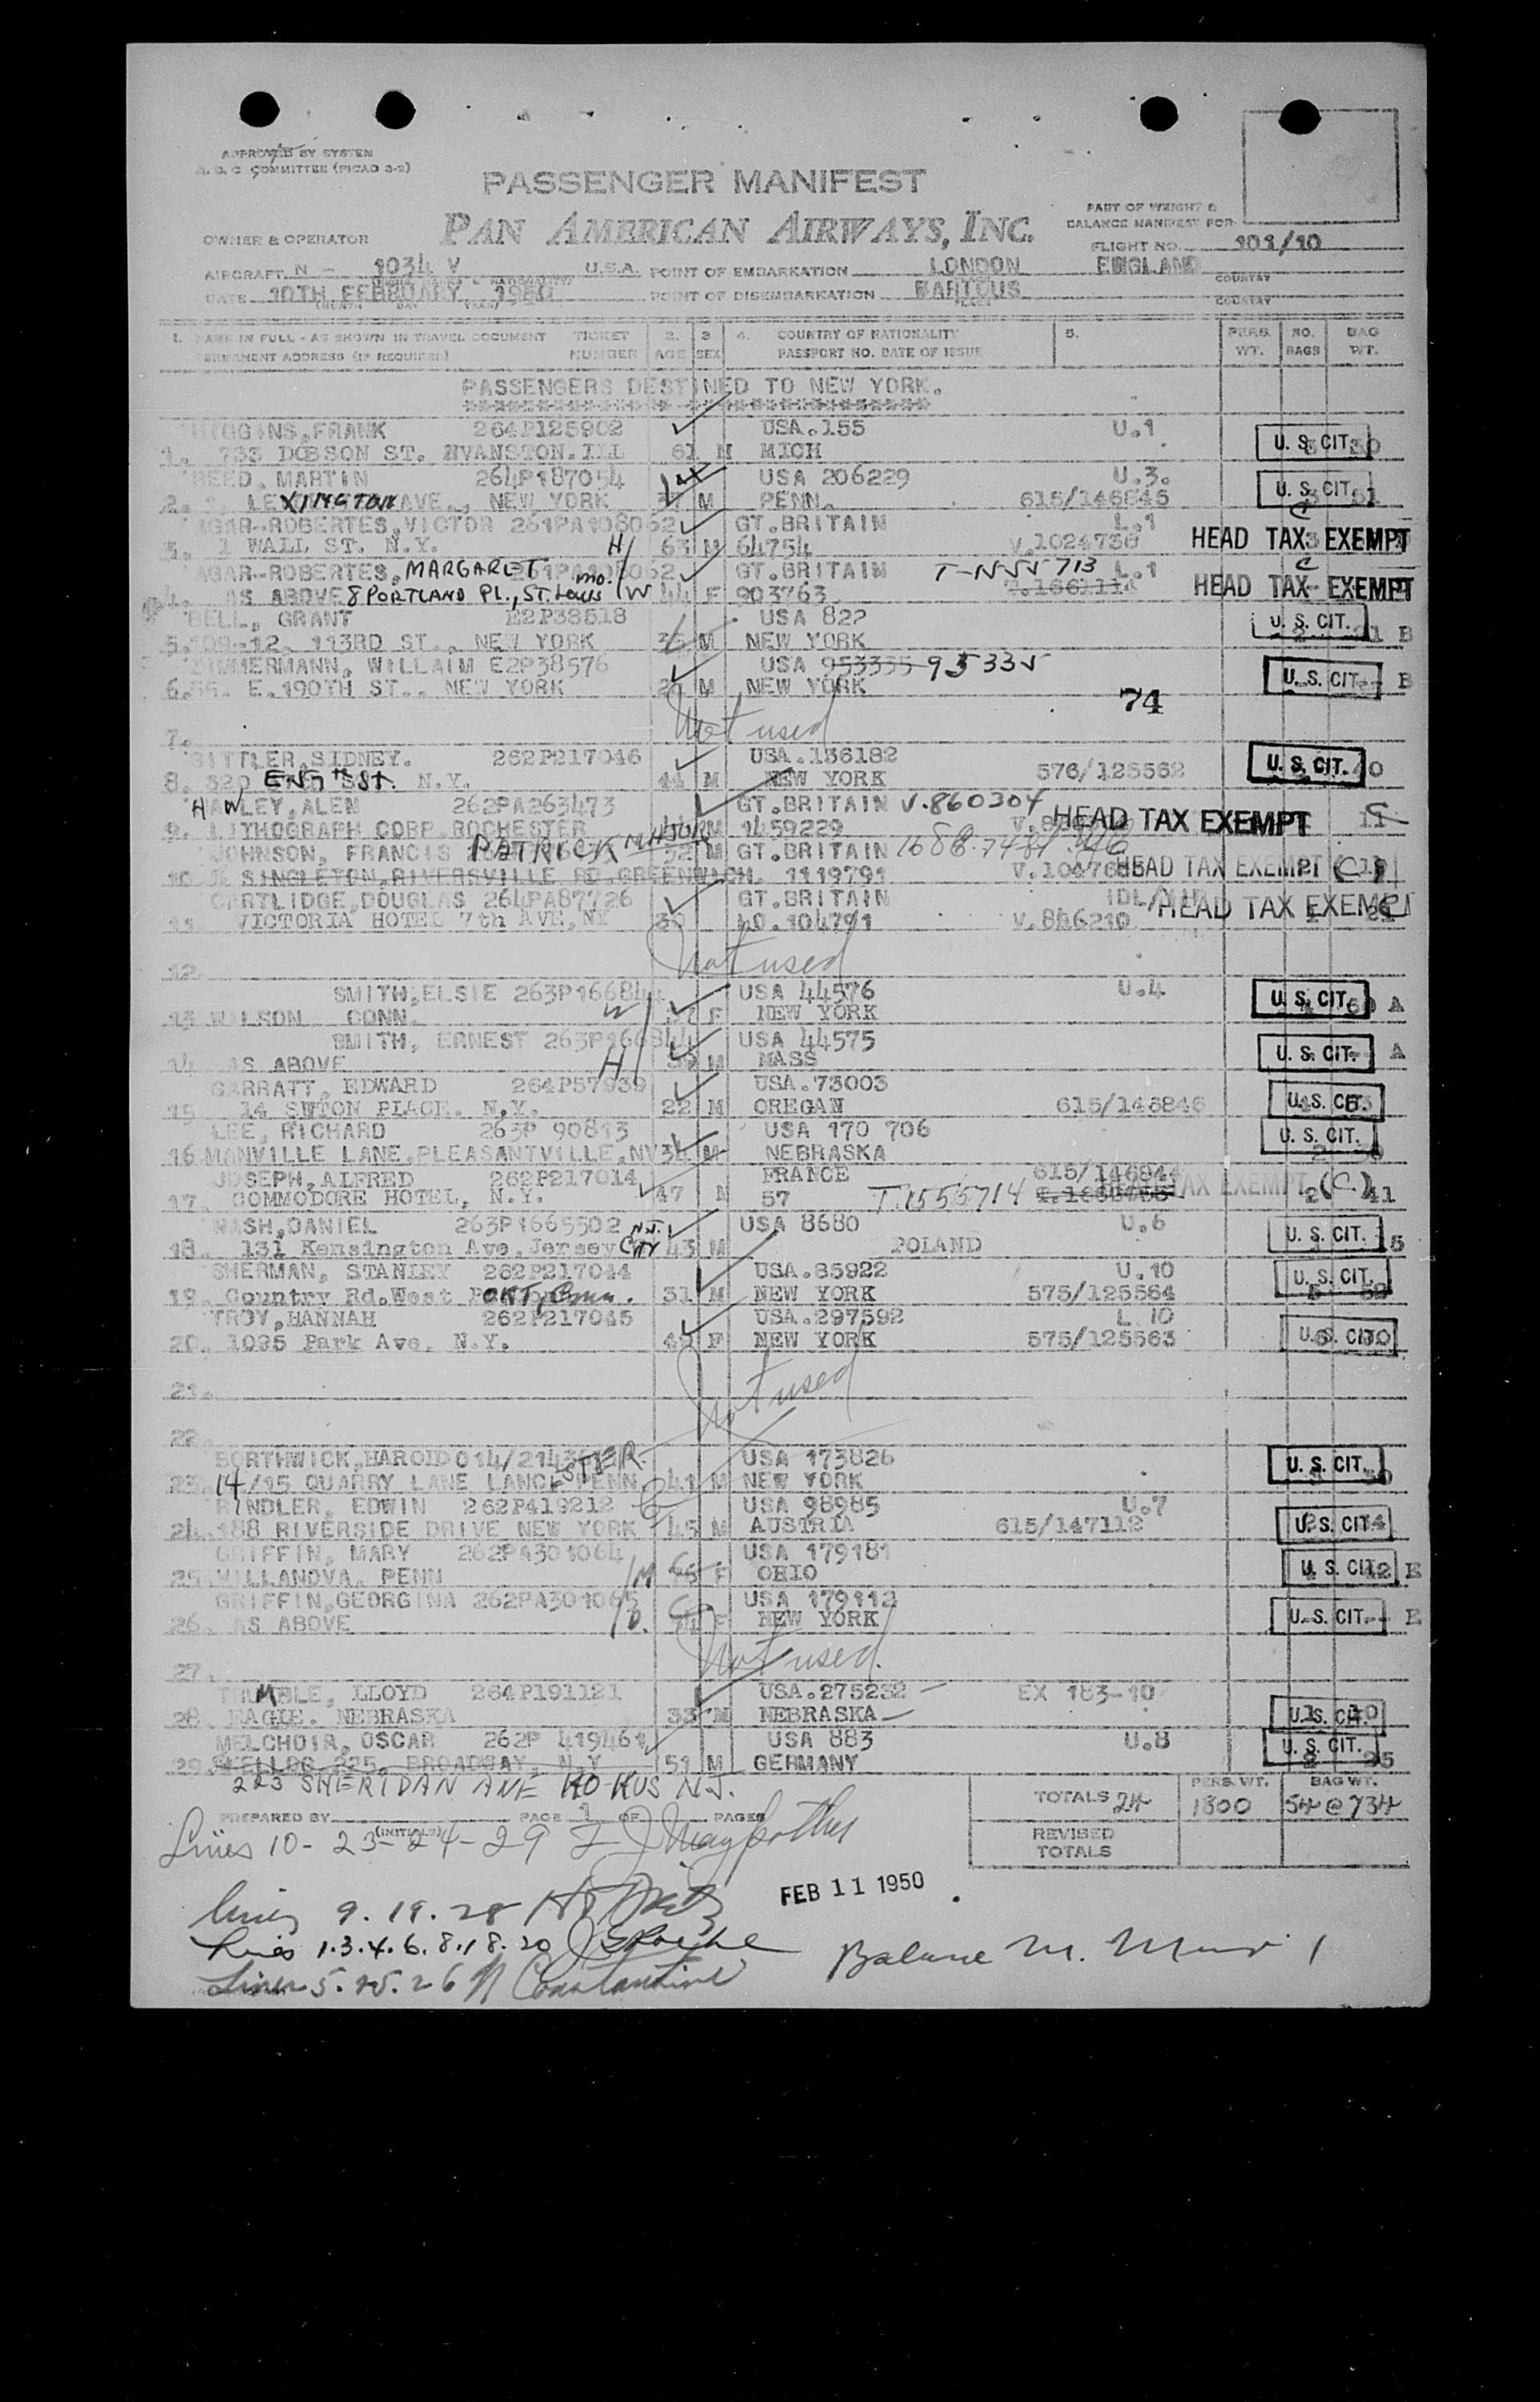 APPROVED BY SYSTEM
A. O. C COMMITTEE (PICAO 3-2)
PASSENGER MANIFEST
PAN AMERICAN AIRWAYS, INC.
PART OF WEIGHT &
BALANCE MANIFEST FOR
OWNER & OPERATOR
FLIGHT NO. 101/10
AIRCRAFT N - 1034 V U.S.A. POINT OF EMBARKATION LONDON ENGLAND COUNTRY
DATE 10TH FEBRUARY, 1950 POINT OF DISEMBARKATION VARIOUS COUNTRY
1. NAME IN FULL - AS SHOWN IN TRAVEL DOCUMENT TICKET 2. 3 4. COUNTRY OF NATIONALITY 5. PERS. NO. BAG
PERMANENT ADDRESS (IF REQUIRED) NUMBER AGE SEX PASSPORT NO. DATE OF ISSUE WT. BAGS WT.
PASSENGERS DESTINED TO NEW YORK.
HIGGINS, FRANK 264P125902 USA.155 U.1
1. 733 DOBSON ST. EVANSTON. ILL 61 M MICH U. S. CIT. 30
REED, MARTIN 264P187054 USA 206229 U.3.
2. LEXINGTON AVE., NEW YORK M PENN. 615/146845 U. S. CIT. 51
AGAR-ROBERTES, VICTOR 261PA108062 GT.BRITAIN L.1
3. 1 WALL ST. N.Y. H 63 M 64754 V.1024738 HEAD TAX EXEMPT
AGAR-ROBERTES, MARGARET 261PA108062 GT.BRITAIN T-1455713 L.1
4. AS ABOVE 8 PORTLAND PL., ST. LOUIS MO. W 44 F 903763 HEAD TAX EXEMPT
BELL, GRANT E2P38518 USA 822 U. S. CIT.
5. 109-12, 113RD ST., NEW YORK 35 M NEW YORK 2 21 B
ZIMMERMANN, WILLAIM E2P38576 USA 953335 95335
6. 55. E.190TH ST.. NEW YORK 29 M NEW YORK U. S. CIT. B
74
7. Not used
GITTLER, SIDNEY. 262P217046 USA.136182
8. 320 N.Y. 44 M NEW YORK 576/125562 U. S. CIT. 40
HAWLEY, ALEN 262PA263473 GT.BRITAIN V.860304
9. LITHOGRAPH CORP. ROCHESTER M 1459229 HEAD TAX EXEMPT
JOHNSON, FRANCIS PATRICK M GT.BRITAIN
10. SINGLETON, RIVERSVILLE RD. GREENWICH. 1119791 HEAD TAX EXEMPT (C)
CARTLIDGE, DOUGLAS 264PA87726 GT.BRITAIN
11. VICTORIA HOTEL 7th AVE, NY 30 40.104791 V.846210 HEAD TAX EXEMPT
12. Not used
SMITH, ELSIE 263P166844 USA 44576 U.4
13 WILSON CONN. W F NEW YORK U. S. CIT. 60 A
SMITH, ERNEST 263P166844 USA 44575
14. AS ABOVE H 39 M MASS U. S. CIT. A
GARRATT, EDWARD 264P57939 USA.73003
15 14 SUTON PLACE. N.Y. 22 M OREGAN 615/146846 U. S. CIT.
LEE, RICHARD 263P 90813 USA 170 706
16 MANVILLE LANE. PLEASANTVILLE, NY M NEBRASKA U. S. CIT.
JOSEPH, ALFRED 262P217014 FRANCE 615/146844
17. COMMODORE HOTEL, N.Y. 47 M 57 T.1555714 HEAD TAX EXEMPT 2 (C) 41
NASH, DANIEL 263P1665502 USA 8680 U.6
18. 131 Kensington Ave. Jersey CITY N.J. 43 M POLAND U. S. CIT. 15
SHERMAN, STANLEY 262P217044 USA.85922 U.10
19. Country Rd. West Port, Conn. 31 M NEW YORK 575/125564 U. S. CIT.
TROY, HANNAH 262P217045 USA.297592 L.10
20. 1095 Park Ave. N.Y. 49 F NEW YORK 575/125563 U. S. CIT.
21. Not used
22.
BORTHWICK, HAROLD USA 173826
23. 14/15 QUARRY LANE LANCASTER PENN 41 M NEW YORK U. S. CIT.
RINDLER, EDWIN 262P419212 USA 98985 U.7
24. 188 RIVERSIDE DRIVE NEW YORK 45 M AUSTRIA 615/147112 U. S. CIT.
GRIFFIN, MARY 262PA301064 USA 179181
25. VILLANOVA, PENN M F OHIO U. S. CIT. E
GRIFFIN, GEORGINA 262PA301065 USA 179112
26. AS ABOVE D. F NEW YORK U. S. CIT. E
27. Not used.
TRUMBLE, LLOYD 264P191121 USA.275232 EX 183-10
28. EAGLE. NEBRASKA 33 M NEBRASKA U. S. CIT.
MELCHOIR, OSCAR 262P 419461 USA 883 U.8
29. 225. BROADWAY, N.Y. 51 M GERMANY U. S. CIT.
223 SHERIDAN AVE HO-KUS N.J.
TOTALS 24 PERS. WT. 1800 BAG WT. 54 @ 734
PREPARED BY (INITIALS) PAGE 1 OF PAGES
REVISED TOTALS
Lines 10-23-24-29
FEB 11 1950
Lines 9.19.28
Lines 1.3.4.6.8.18.20
Lines 5.25.26 N Constantine
Balance M.